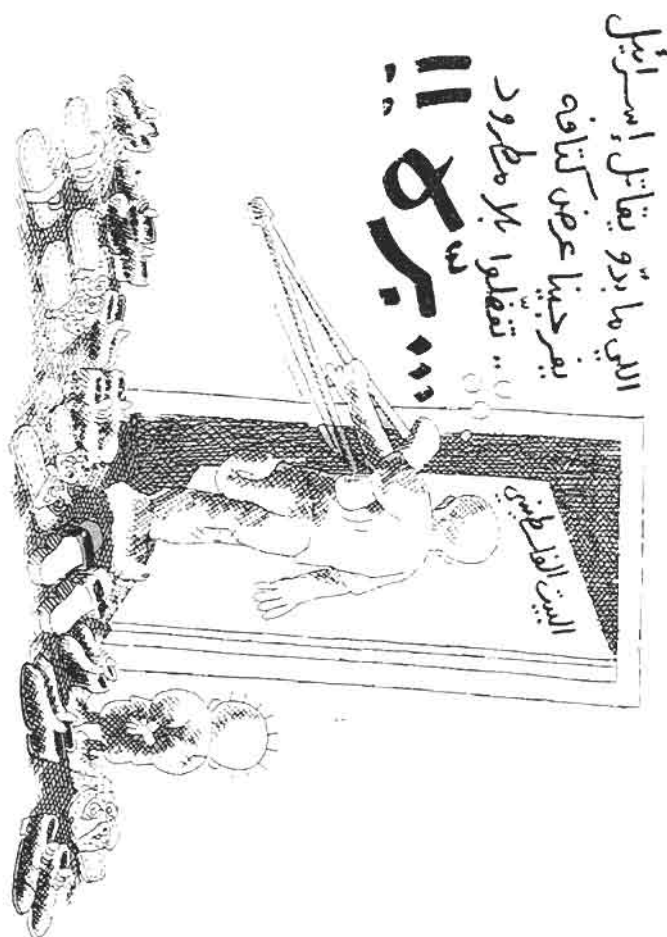 اللي ما بدّو يقاتل إسرائيل
يفرجينا عرض كتافه
.. تفضلوا بلا مطرود
... برّه !!
البيت الفلسطيني